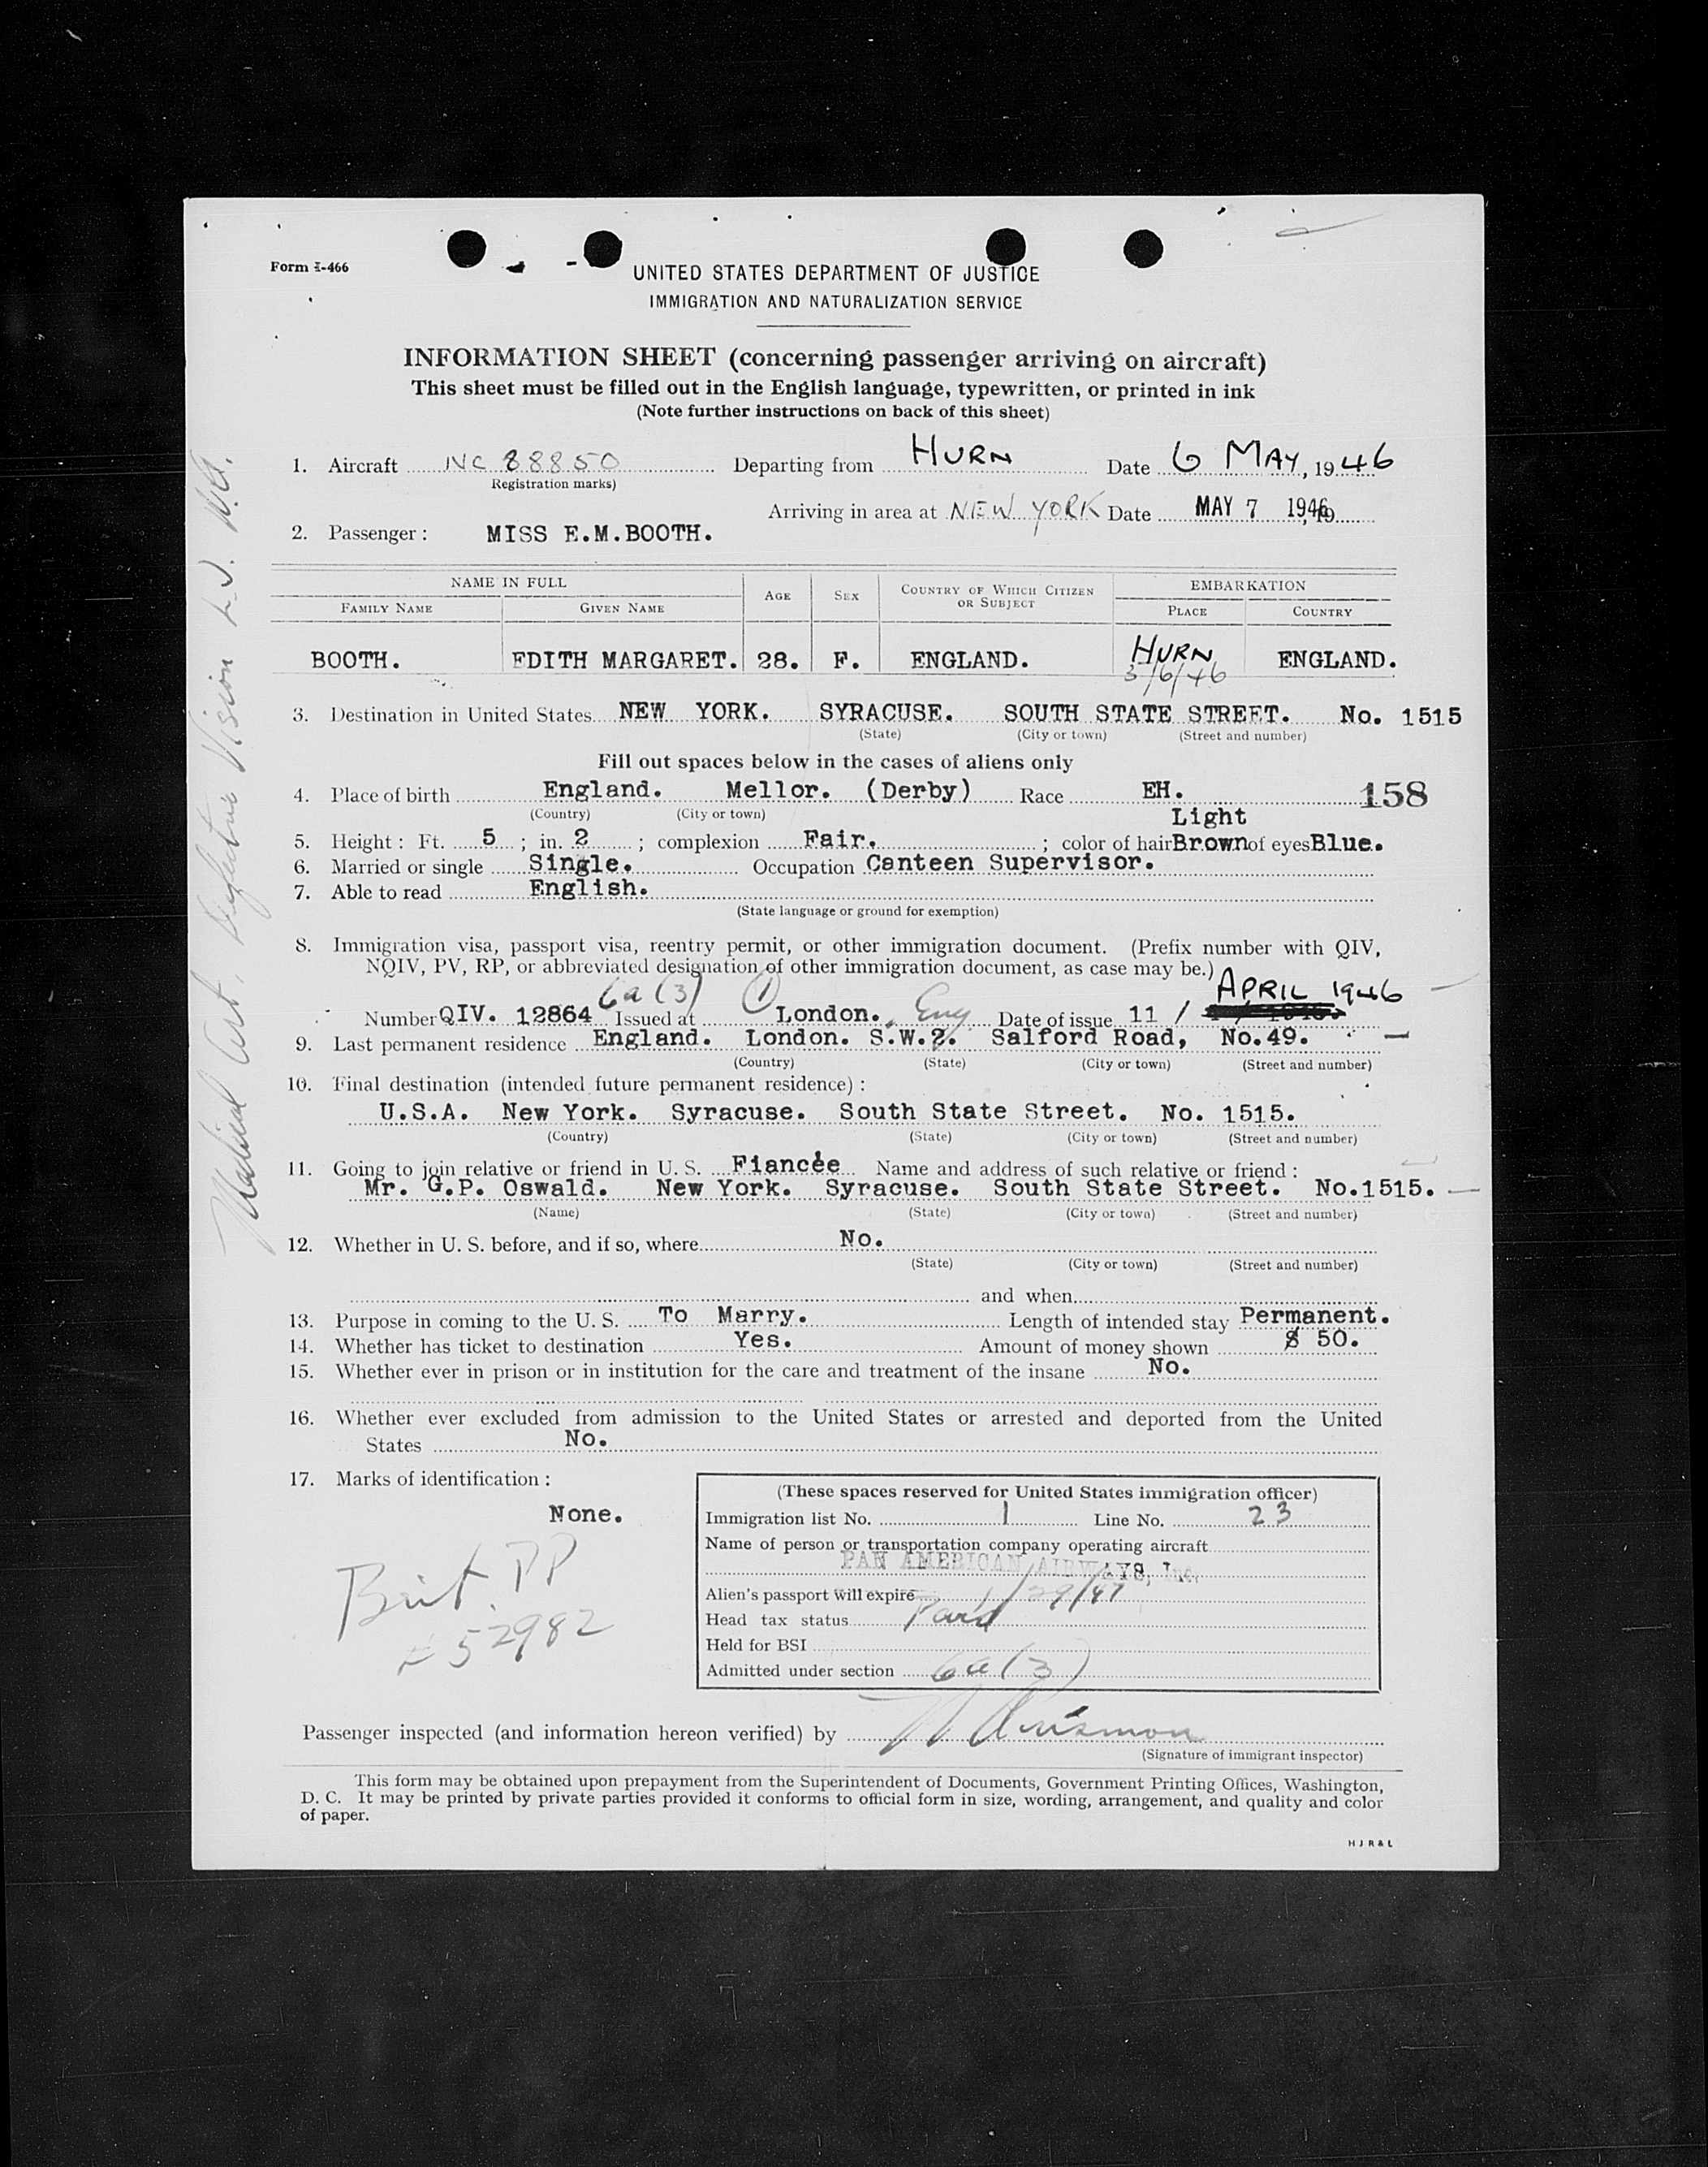 Form I-466
UNITED STATES DEPARTMENT OF JUSTICE
IMMIGRATION AND NATURALIZATION SERVICE
INFORMATION SHEET (concerning passenger arriving on aircraft)
This sheet must be filled out in the English language, typewritten, or printed in ink
(Note further instructions on back of this sheet)
1. Aircraft NC 88850 Departing from HURN Date 6 MAY, 1946
(Registration marks)
Arriving in area at NEW YORK Date MAY 7 1946, 19
2. Passenger: MISS E.M.BOOTH.
NAME IN FULL AGE SEX COUNTRY OF WHICH CITIZEN OR SUBJECT EMBARKATION
FAMILY NAME GIVEN NAME PLACE COUNTRY
BOOTH. EDITH MARGARET. 28. F. ENGLAND. HURN ENGLAND.
5/6/46
3. Destination in United States NEW YORK. SYRACUSE. SOUTH STATE STREET. No. 1515
(State) (City or town) (Street and number)
Fill out spaces below in the cases of aliens only
4. Place of birth England. Mellor. (Derby) Race EH. 158
(Country) (City or town)
Light
5. Height: Ft. 5 ; in. 2 ; complexion Fair. ; color of hair Brown of eyes Blue.
6. Married or single Single. Occupation Canteen Supervisor.
7. Able to read English.
(State language or ground for exemption)
8. Immigration visa, passport visa, reentry permit, or other immigration document. (Prefix number with QIV,
NQIV, PV, RP, or abbreviated designation of other immigration document, as case may be.)
6a (3) 1 APRIL 1946
Number QIV. 12864 Issued at London. Eng Date of issue 11 /
9. Last permanent residence England. London. S.W.2. Salford Road, No.49.
(Country) (State) (City or town) (Street and number)
10. Final destination (intended future permanent residence):
U.S.A. New York. Syracuse. South State Street. No. 1515.
(Country) (State) (City or town) (Street and number)
11. Going to join relative or friend in U. S. Fiancée Name and address of such relative or friend:
Mr. G.P. Oswald. New York. Syracuse. South State Street. No.1515.
(Name) (State) (City or town) (Street and number)
12. Whether in U. S. before, and if so, where No.
(State) (City or town) (Street and number)
and when
13. Purpose in coming to the U. S. To Marry. Length of intended stay Permanent.
14. Whether has ticket to destination Yes. Amount of money shown $ 50.
15. Whether ever in prison or in institution for the care and treatment of the insane No.
16. Whether ever excluded from admission to the United States or arrested and deported from the United
States No.
17. Marks of identification:
None.
Brit. PP
# 52982
(These spaces reserved for United States immigration officer)
Immigration list No. 1 Line No. 23
Name of person or transportation company operating aircraft
PAN AMERICAN AIRWAYS, Inc.
Alien's passport will expire 1/29/47
Head tax status Paid
Held for BSI
Admitted under section 6a (3)
Passenger inspected (and information hereon verified) by
(Signature of immigrant inspector)
This form may be obtained upon prepayment from the Superintendent of Documents, Government Printing Offices, Washington,
D. C. It may be printed by private parties provided it conforms to official form in size, wording, arrangement, and quality and color
of paper.
H J R & L
Medical Cert, Defective Vision